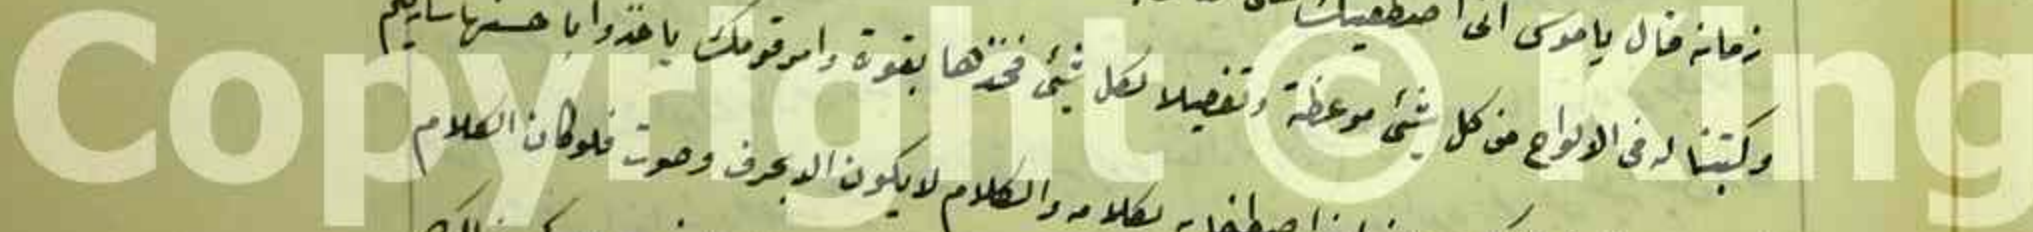 زمانه قال ياموسى انى اصطفيتك
وكتبنا له فى الالواح من كل شئ موعظة وتفصيلا لكل شئ فخذها بقوة وامر قومك ياخذوا باحسنها ساريكم
اصطفاه بكلامه والكلام لايكون الا بحرف وصوت فلو كان الكلام
Copyright © King